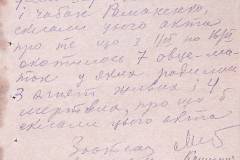 і чабан Романенко,
склали цього акта
про те що з 11/ІІ по 16/ІІ
окотилось 7 овце-ма-
ток у яких родились
3 ягнят живих і 4
мертвих, про що й
склали цього акта